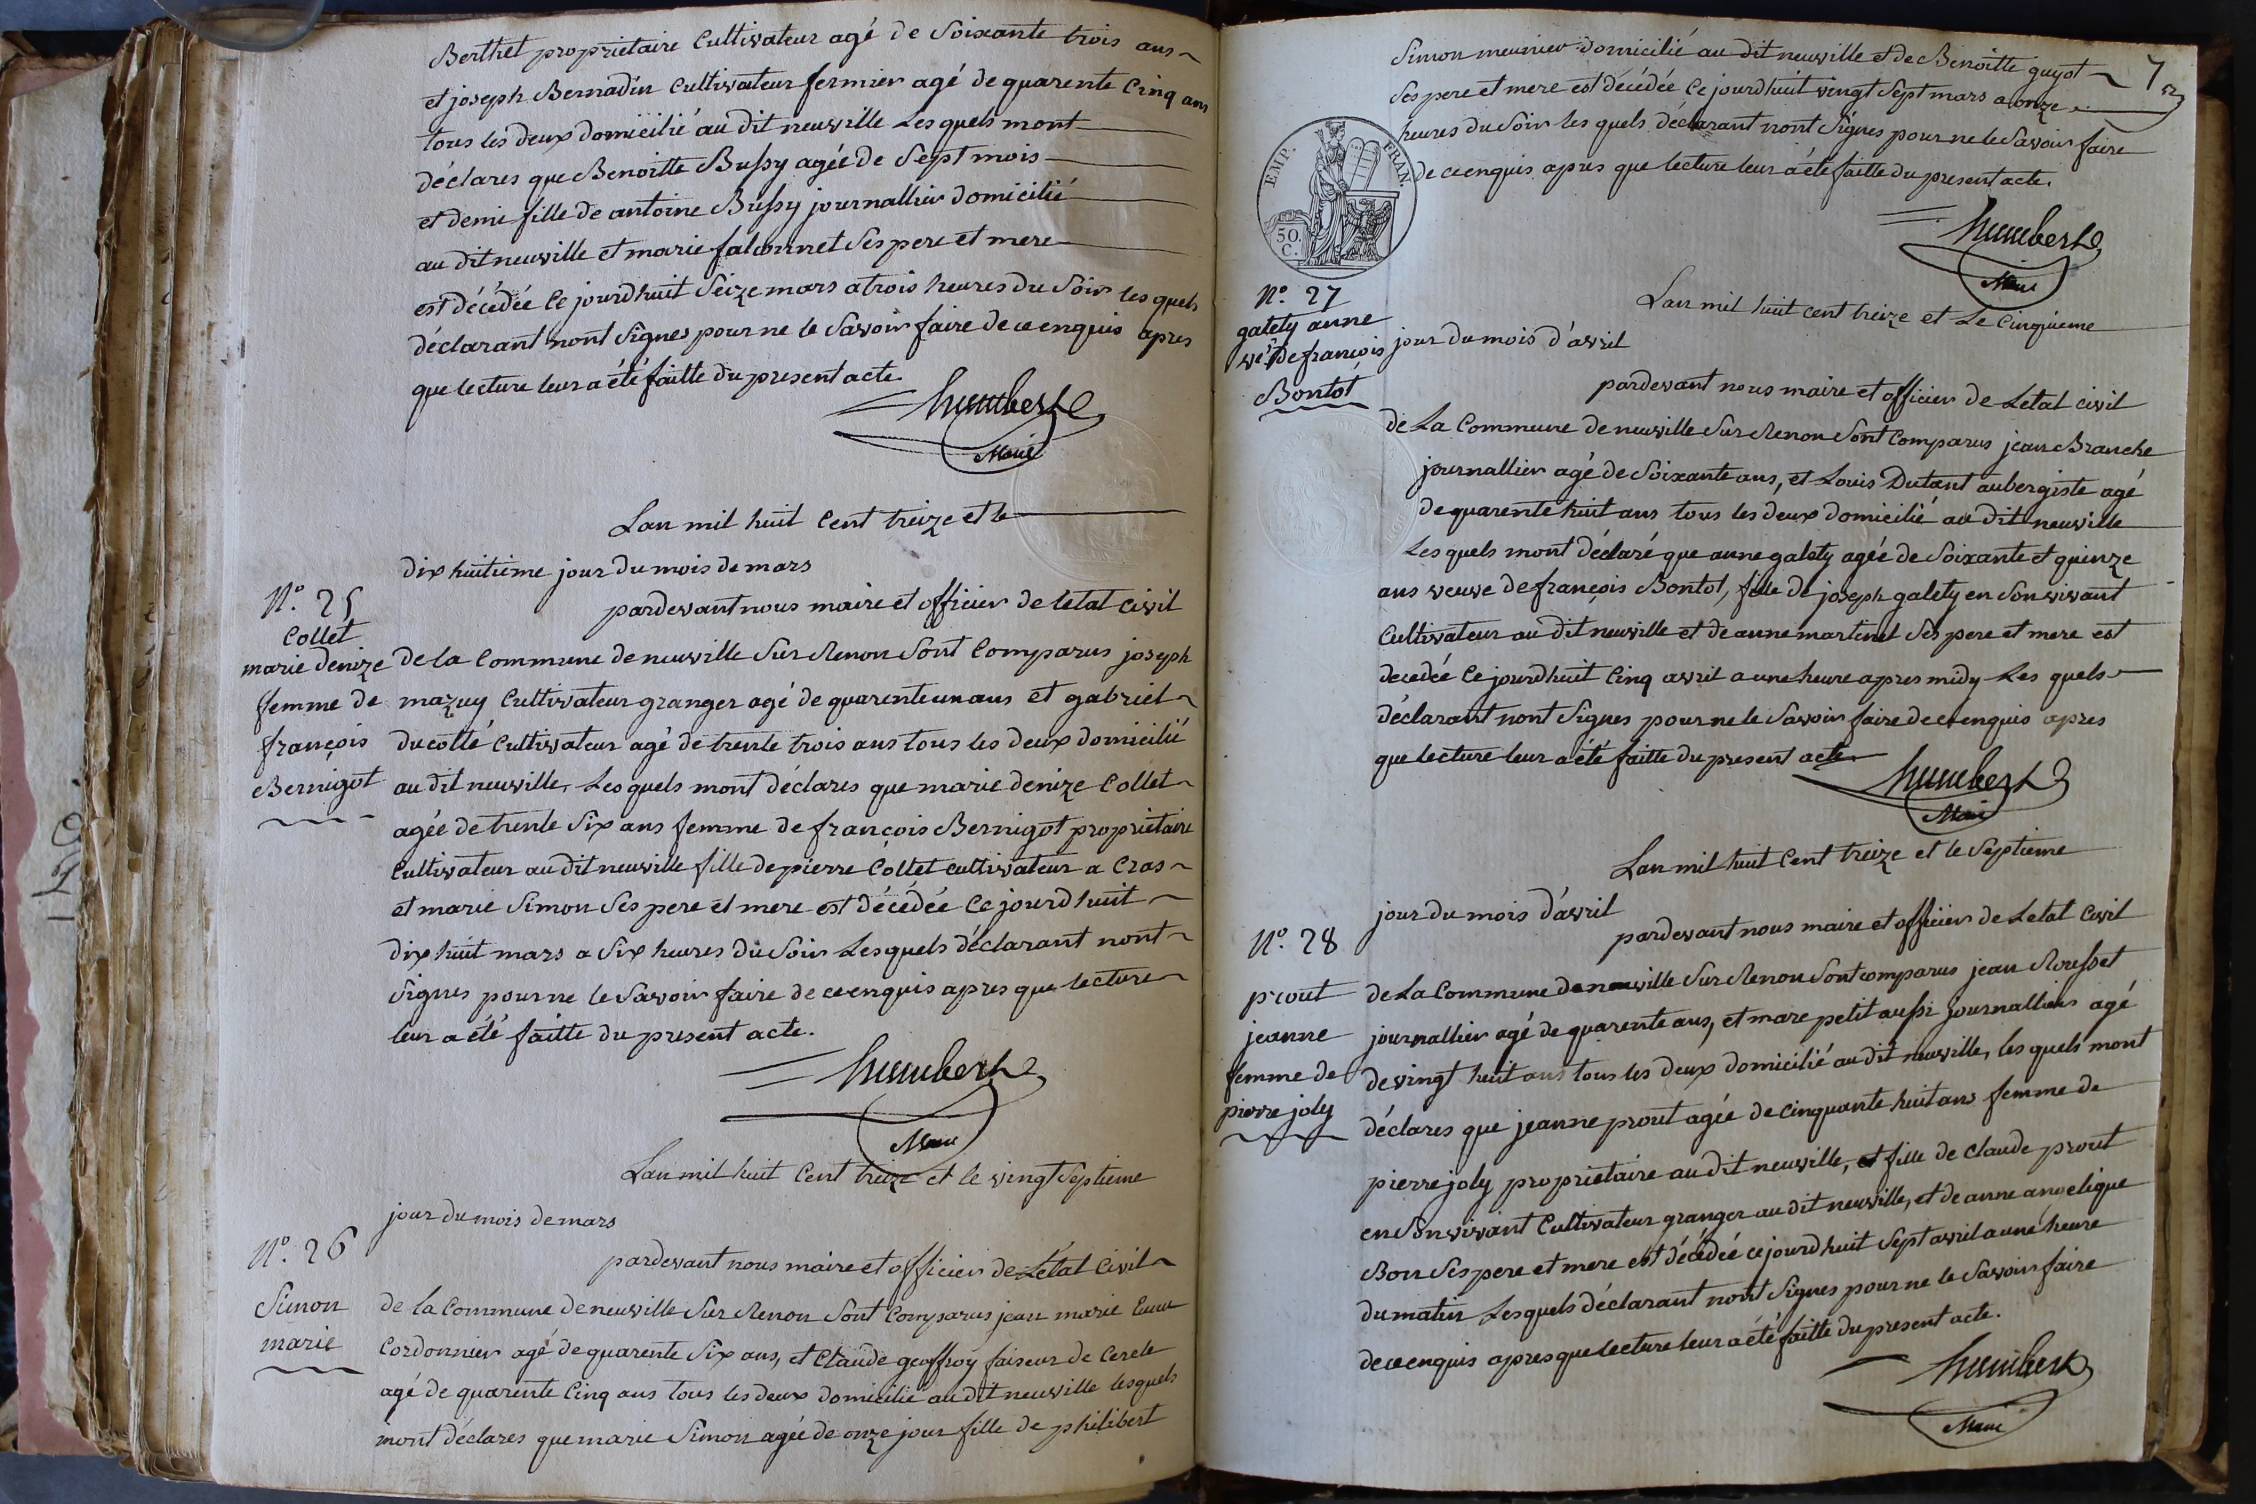 Berthet propriétaire Cultivateur agé de Soixante trois ans
et joseph Bernadin Cultivateur fermier agé de quarente Cinq ans
tous les deux domicilié au dit neuville Les quels mont
déclares que Benoitte Bussy agée de Sept mois
et demi fille de antoine Bussy journallier domicilié
au dit neuville et marie falconnet Ses pere et mere
est décédée Ce jourdhuit Seize mars a trois heures du Soir les quels
déclarant nont Signes pour ne le Savoir faire de ce enquis apres
que lecture leur a été faitte du present acte
humbert
Maire
Lan mil huit Cent treize et le
dix huitieme jour du mois de mars
N.º 25
Collet
marie denize
femme de
françois
Bernigot
pardevant nous maire et officier de letat Civil
de la Commune de neuville Sur Renon Sont Comparus joseph
mazuy Cultivateur granger agé de quarente un ans et gabriel
ducotté Cultivateur agé de trente trois ans tous les deux domicilié
au dit neuville, Les quels mont déclares que marie denize Collet
agée de trente Six ans femme de françois Bernigot propriétaire
Cultivateur au dit neuville fille de pierre Collet cultivateur a Cras
et marie Simon Ses pere et mere est décédée Ce jourdhuit
dix huit mars a Six heures du Soir Lesquels déclarant nont
Signes pour ne le Savoir faire de ce enquis apres que lecture
leur a été faitte du present acte.
humbert
Maire
Lan mil huit Cent treize et le vingt Septieme
jour du mois de mars
N.º 26
Simon
marie
pardevant nous maire et officier de Létat Civil
de la Commune de neuville Sur Renon Sont Comparus jean marie
Cordonnier agé de quarente Six ans, et Claude geoffroy faiseur de Cercle
agé de quarente Cinq ans tous les deux domicilié au dit neuville lesquels
mont déclares que marie Simon agée de onze jour fille de philibert
7
Simon meunier domicilié au dit neuville et de Benoitte guyot
Ses pere et mere est décédée Ce jourdhuit vingt Sept mars a onze
heures du Soir les quels déclarant nont Signes pour ne le Savoir faire
de ce enquis apres que lecture leur a été faitte du present acte.
EMP. FRAN.
50. C.
humbert
Maire
N.º 27
galety anne
ve. de françois
Bontot
Lan mil huit cent treize et Le Cinquieme
jour du mois d'avril
pardevant nous maire et officier de Letat civil
de La Commune de neuville Sur Renon Sont Comparus jean Branche
journallier agé de Soixante ans, et Louis Dutant aubergiste agé
de quarente huit ans tous les deux domicilié au dit neuville
Les quels mont déclaré que anne galety agée de Soixante et quinze
ans veuve de françois Bontot, fille de joseph galety en Son vivant
Cultivateur au dit neuville et de anne martinet Ses pere et mere est
decedée Ce jourdhuit Cinq avril a une heure apres midy Les quels
déclarant nont Signes pour ne le Savoir faire de ce enquis apres
que lecture leur a été faitte du present acte
humbert
Maire
Lan mil huit Cent treize et le Septieme
jour du mois d'avril
N.º 28
prout
jeanne
femme de
pierre joly
pardevant nous maire et officier de Letat Civil
de La Commune de neuville Sur Renon Sont comparus jean Rousset
journallier agé de quarente ans, et marc petit aussi journallier agé
de vingt huit ans tous les deux domicilié au dit neuville, les quels mont
déclares que jeanne prout agée de cinquante huit ans femme de
pierre joly propriétaire au dit neuville, et fille de claude prout
en Son vivant Cultivateur granger au dit neuville, et de anne angelique
Bon Ses pere et mere est décédée ce jourdhuit Sept avril a une heure
du matin Lesquels déclarant nont Signes pour ne le Savoir faire
de ce enquis apres que lecture leur a été faitte du present acte.
humbert
Maire